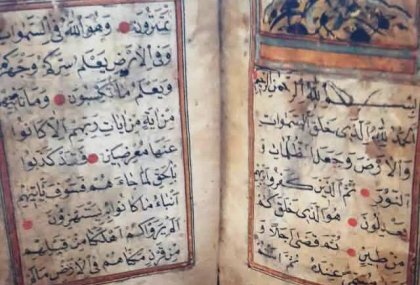 بسم الله الرحمن الرحيم
الحمد لله الذي خلق السموات
والارض وجعل الظلمات و
النور ثم الذين كفروا بربهم
يعدلون هو الذي خلقكم
من طين ثم قضى اجلا و
مسمى عنده ثم انتم
تمترون وهو الله في السموات
وفي الارض يعلم سركم وجهركم
ويعلم ما تكسبون وما تاتيهم
من اية من ايات ربهم الا كانوا
عنها معرضين فقد كذبوا
بالحق لما جاءهم فسوف ياتيهم
انباء ما كانوا به يستهزءون
الم يروا كم اهلكنا من قبلهم
من قرن مكناهم في الارض مالم